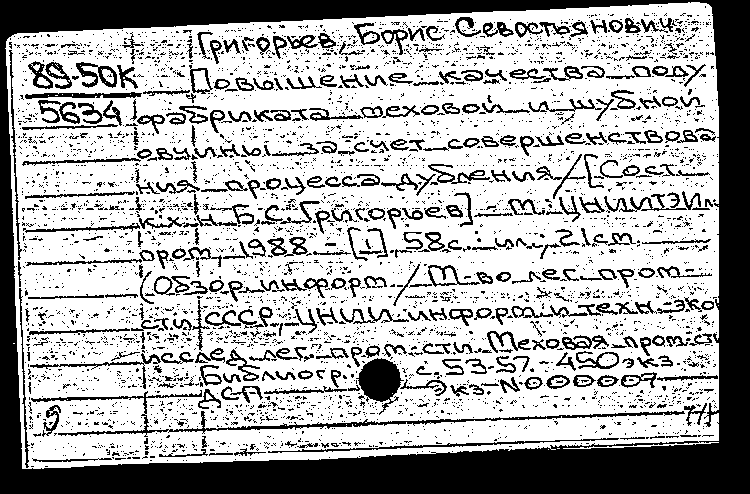 Григорьев, Борис Севостьянович.
89-50к
Повышение качества полу
5634
фабриката меховой и шубной
овчины за счет совершенствова
ния процесса дубления / [Сост.
к.х.н. Б.С. Григорьев] - М.: ЦНИИТЭИл
пром, 1988. - [1], 58с.: ил.; 21см.
(Обзор. информ. / М-во лег. пром-
сти СССР, ЦНИИ информ. и техн.-экон
исслед. лег. пром-сти. Меховая пром-сть
Библиогр.: с. 53-57. - 450 экз.
ДСП. Экз. N000007.